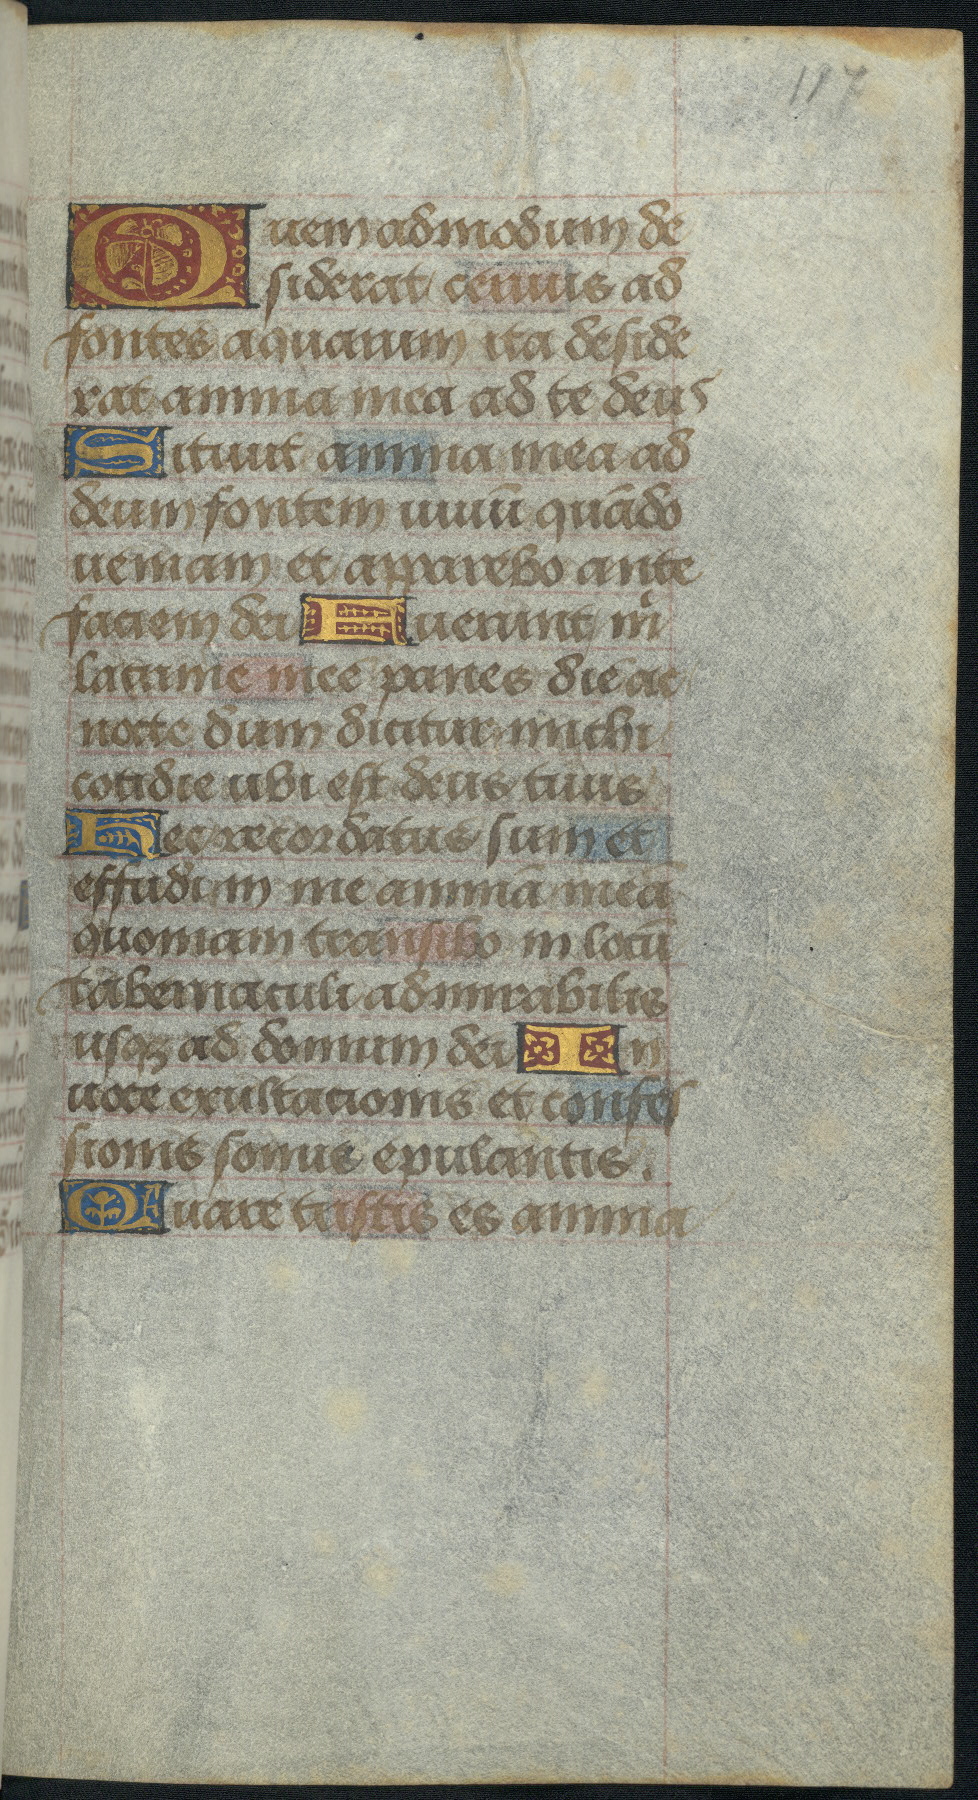 117
Quem admodum de
siderat ceruus ad
fontes aquarum ita deside
rat anima mea ad te deus
Sitiuit anima mea ad
deum fontem uiuū quādo
ueniam et apparebo ante
faciem dei Fuerunt m̄
lacrime mee panes die ac
nocte dum dicitur michi
cotidie ubi est deus tuus
Hec recordatus sum et
effudi in me animā meā
quoniam transibo in locū
tabernaculi admirabilis
usqꝫ ad domum dei In
uoce exultationis et confes
sionis sonus epulantis.
Quare tristis es anima